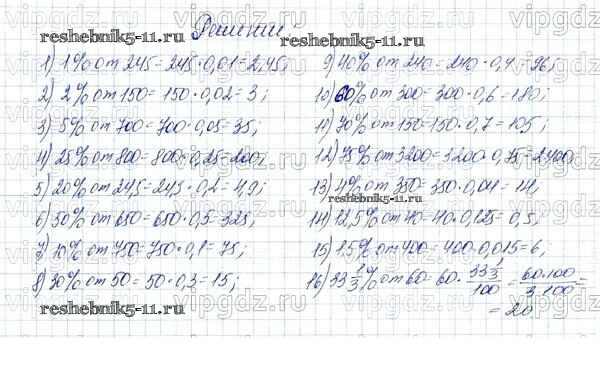 vipgdz.ru
Решение:
reshebnik5-11.ru
reshebnik5-11.ru
1) 1% от 245 = 245 · 0,01 = 2,45;
2) 2% от 150 = 150 · 0,02 = 3;
3) 5% от 700 = 700 · 0,05 = 35;
4) 25% от 800 = 800 · 0,25 = 200;
5) 20% от 24,5 = 24,5 · 0,2 = 4,9;
6) 50% от 650 = 650 · 0,5 = 325;
7) 10% от 750 = 750 · 0,1 = 75;
8) 30% от 50 = 50 · 0,3 = 15;
reshebnik5-11.ru
9) 40% от 240 = 240 · 0,4 = 96;
10) 60% от 300 = 300 · 0,6 = 180;
11) 70% от 150 = 150 · 0,7 = 105;
12) 75% от 3200 = 3200 · 0,75 = 2400
13) 4% от 350 = 350 · 0,04 = 14;
reshebnik5-11.ru
14) 12,5% от 40 = 40 · 0,125 = 0,5;
15) 1,5% от 400 = 400 · 0,015 = 6;
16) 33 1/3 % от 60 = 60 · 33 1/3 / 100 = 60·100 / 3·100 =
= 20